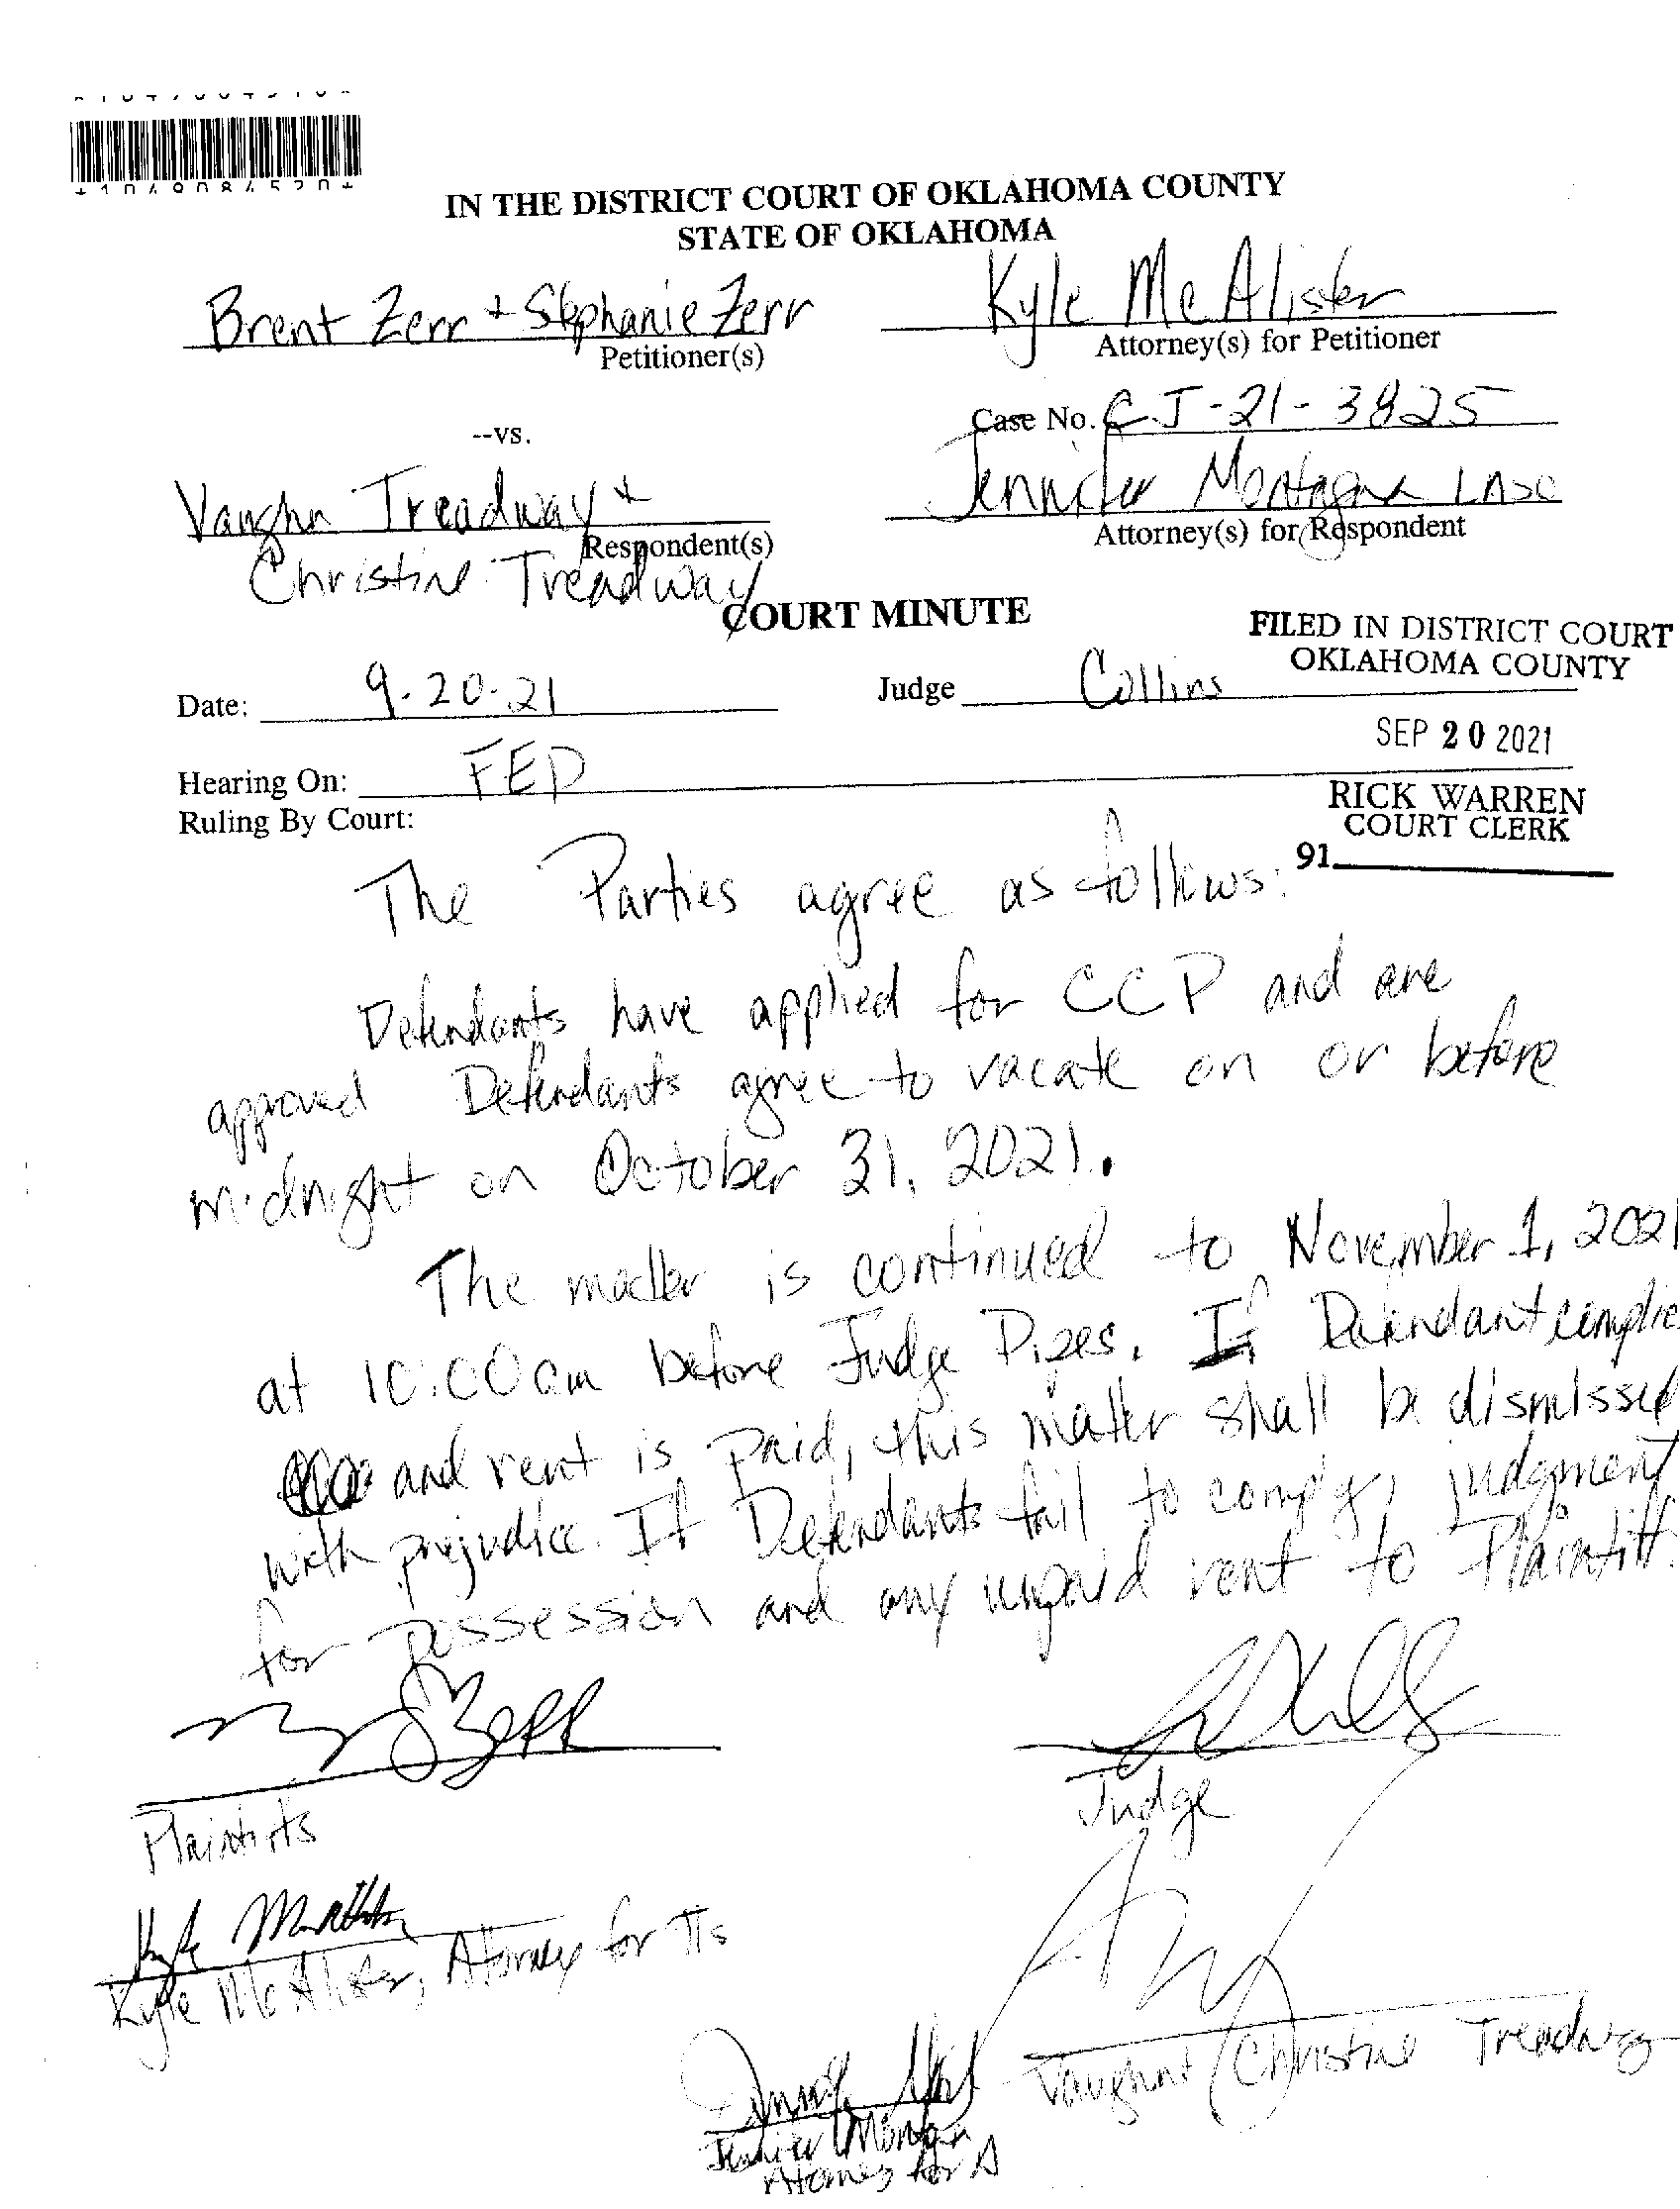 *1049084520*
IN THE DISTRICT COURT OF OKLAHOMA COUNTY
STATE OF OKLAHOMA
Brent Zerr + Stephanie Zerr
Petitioner(s)
Kyle McAlister
Attorney(s) for Petitioner
--vs.
Case No. CJ-21-3825
Vaughn Treadway +
Respondent(s)
Christine Treadway
Jennifer Montagna LASO
Attorney(s) for Respondent
COURT MINUTE
FILED IN DISTRICT COURT
OKLAHOMA COUNTY
Date: 9-20-21
Judge Collins
SEP 20 2021
Hearing On: FED
RICK WARREN
COURT CLERK
91
Ruling By Court:
The Parties agree as follows:
Defendants have applied for CCP and are
approved Defendants agree to vacate on or before
midnight on October 31, 2021.
The matter is continued to November 1, 2021
at 10:00am before Judge Pipes. If Defendant complie
and rent is paid, this matter shall be dismissed
with prejudice. If Defendants fail to comply, judgment
for possession and any unpaid rent to Plaintiff.
Plaintiffs
Judge
Kyle McAlister, Attorney for πs
Vaughn / Christine Treadway
Jennifer Montagna
Attorney for Δ